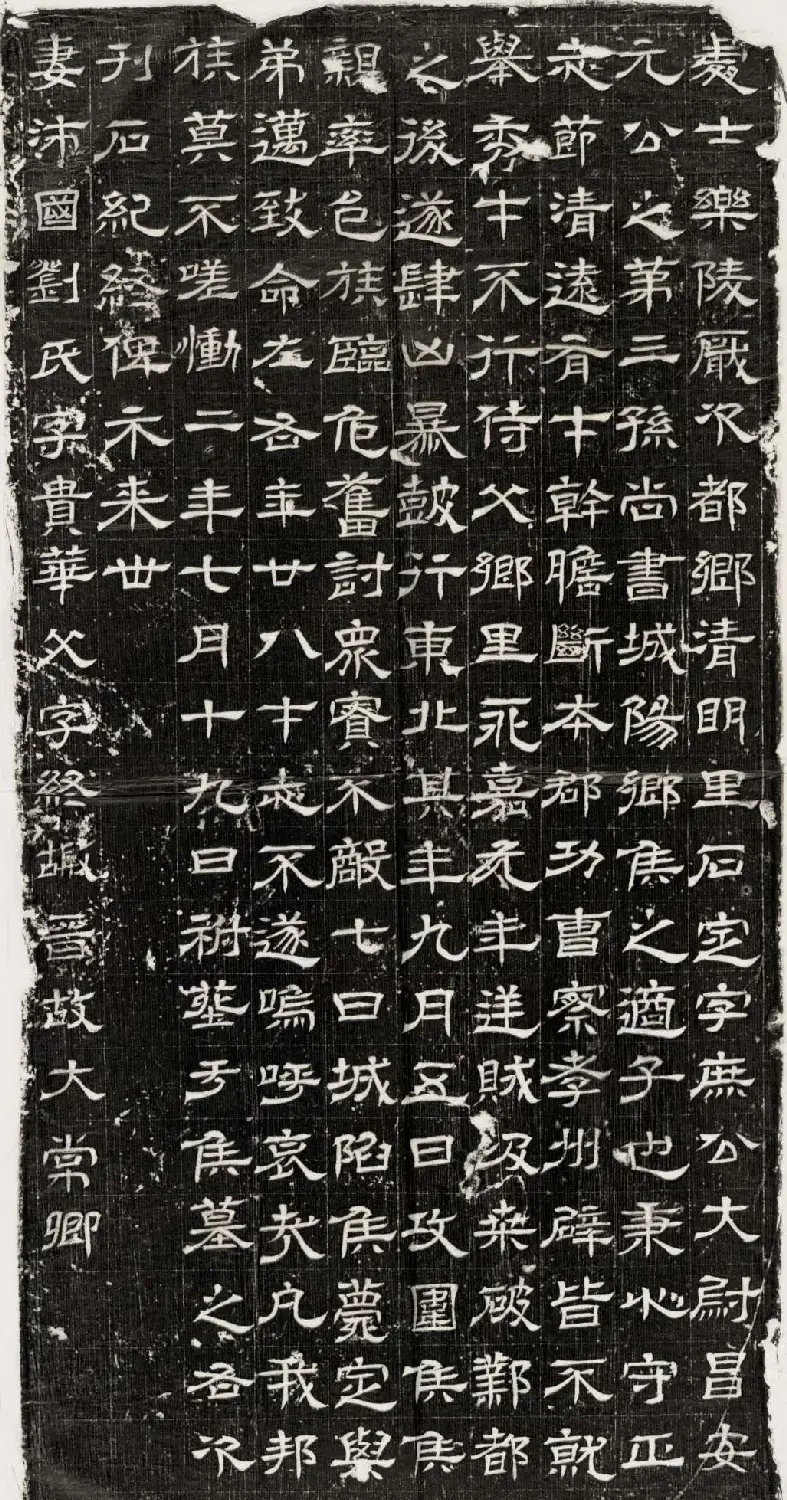 處士樂陵厭次都鄉清明里石定字庶公大尉昌安
元公之第三孫尚書城陽鄉侯之適子也秉心守正
志節清遠有才幹膽斷本郡功曹察孝州辟皆不就
舉秀才不行侍父鄉里永嘉元年逆賊汲桑破鄴都
之後遂肆凶暴鼓行東北其年九月五日攻圍侯侯
親率邑族臨危奮討眾寡不敵七日城陷侯薨定與
弟邁致命左右年廿八才志不遂嗚呼哀哉凡我邦
族莫不嗟慟二年七月十九日祔塟于侯墓之右次
刊石紀終俾示来世
妻沛國劉氏字貴華父字終嘏晉故大常卿